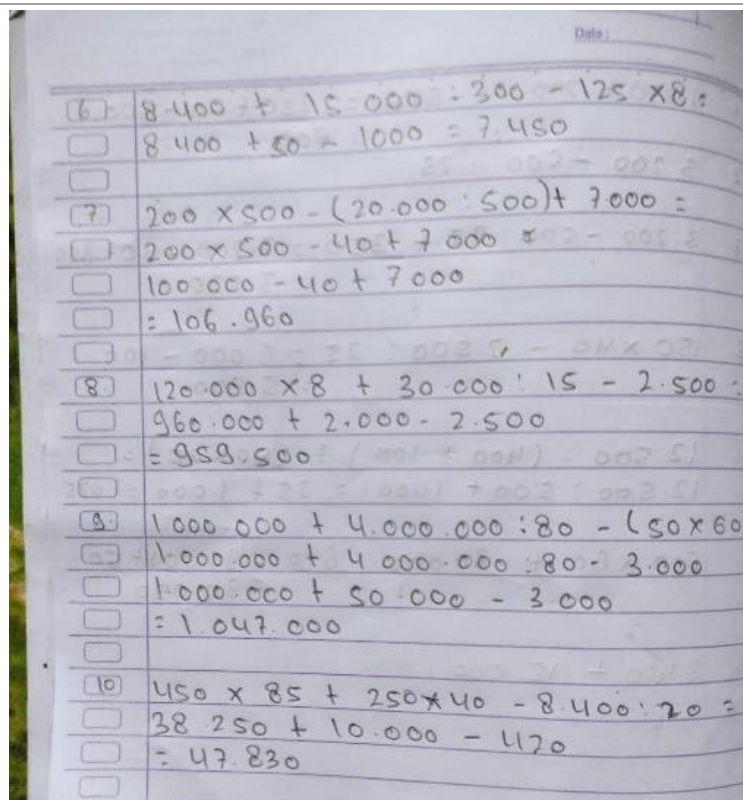 Date:
6 8.400 + 15.000 : 300 - 125 x 8 =
8.400 + 50 - 1000 = 7.450
7. 200 x 500 - (20.000 : 500) + 7.000 =
200 x 500 - 40 + 7000 =
100.000 - 40 + 7000
= 106.960
8. 120.000 x 8 + 30.000 : 15 - 2.500 =
960.000 + 2.000 - 2.500
= 959.500
9. 1.000.000 + 4.000.000 : 80 - (50 x 60
1.000.000 + 4.000.000 : 80 - 3.000
1.000.000 + 50.000 - 3.000
= 1.047.000
10 450 x 85 + 250 x 40 - 8.400 : 20 =
38.250 + 10.000 - 420
= 47.830